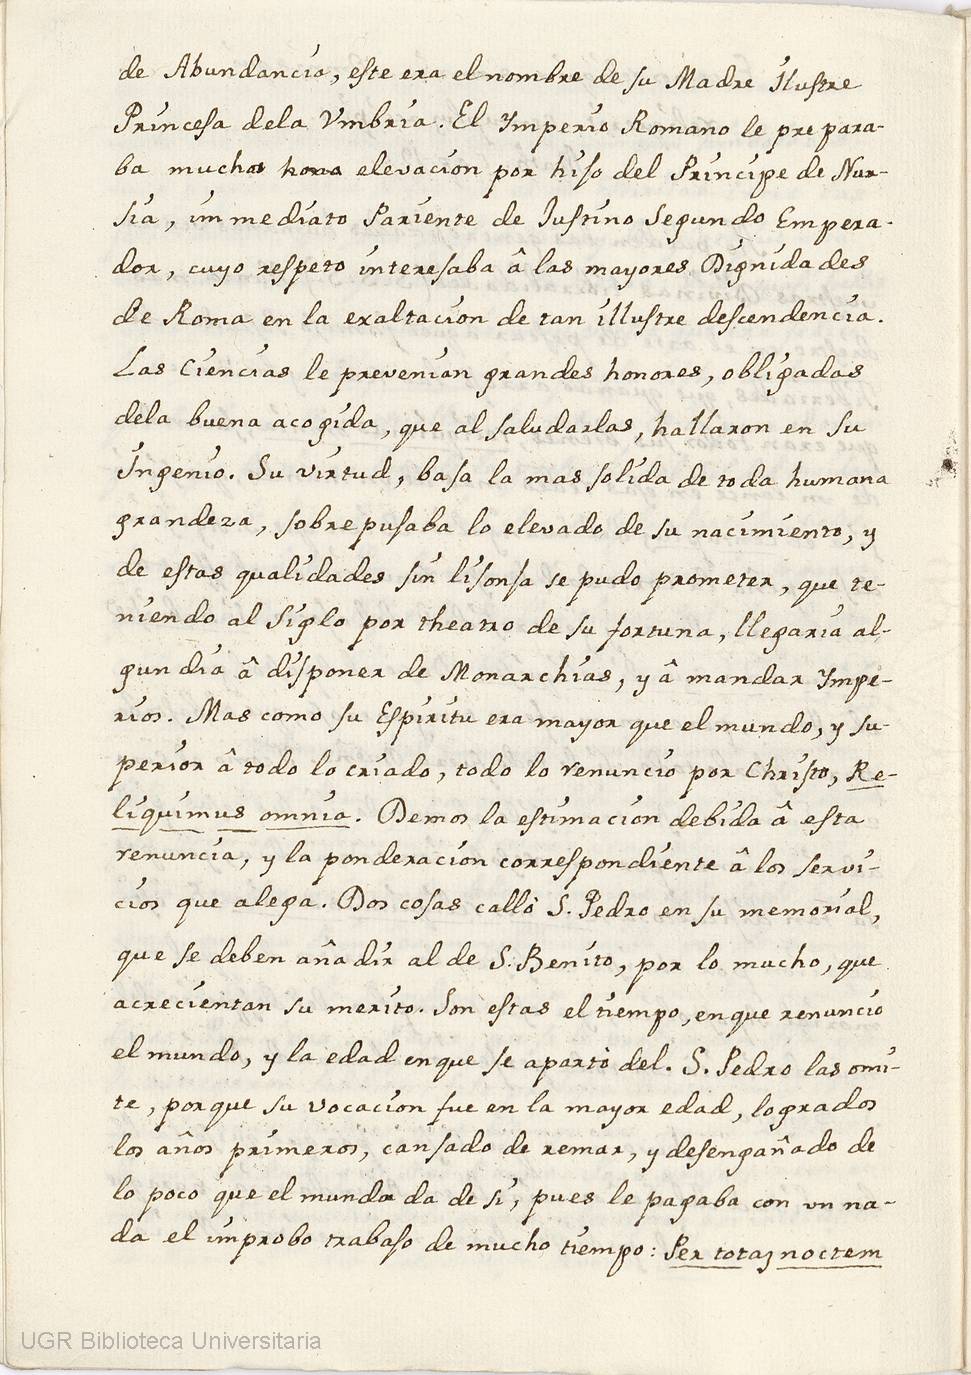 de Abundancia, este era el nombre de su Madre Ilustre
Princesa dela Vmbria. El Ymperio Romano le prepara-
ba mucha elevacion por hijo del Principe de Nur-
sia, immediato Pariente de Justino Segundo Empera-
dor, cuyo respeto interesaba â las mayores Dignidades
de Roma en la exaltacion de tan illustre descendencia.
Las Ciencias le prevenian grandes honores, obligadas
dela buena acogida, que al saludarlas, hallaron en su
Ingenio. Su virtud, basa la mas solida de toda humana
grandeza, sobrepujaba lo elevado de su nacimiento, y
de estas qualidades sin lisonja se pudo prometer, que te-
niendo al Siglo por theatro de su fortuna, llegaria al-
gun dia â disponer de Monarchias, y â mandar Ympe-
rios. Mas como su Espiritu era mayor que el mundo, y su-
perior â todo lo criado, todo lo renunciò por Christo, Re-
liquimus omnia. Demos la estimacion debida â esta
renuncia, y la ponderacion correspondiente â los servi-
cios que alega. Dos cosas callò S. Pedro en su memorial,
que se deben añadir al de S. Benito, por lo mucho, que
acrecientan su merito. Son estas el tiempo, en que renunciò
el mundo, y la edad en que se apartò del. S. Pedro las omi-
te, porque su vocacion fue en la mayor edad, logrados
los años primeros, cansado de remar, y desengañado de
lo poco que el mundo da de sì, pues le pagaba con vn na-
da el improbo trabajo de mucho tiempo: Per totaz noctem
UGR Biblioteca Universitaria